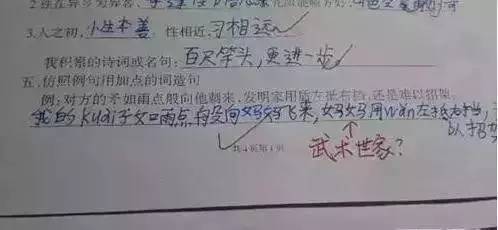 2.独在异乡为异客,
3.人之初,性本善。性相近,习相远
我积累的诗词或名句:百尺竿头,更进一步
五.仿照例句用加点的词造句
例:对方的矛如雨点般向他刺来,发明家用盾左抵右挡,还是难以招架。
我的kuài子如雨点般向妈妈飞来,妈妈用wǎn左抵右挡,
以招架
共4页第1页
武术世家?